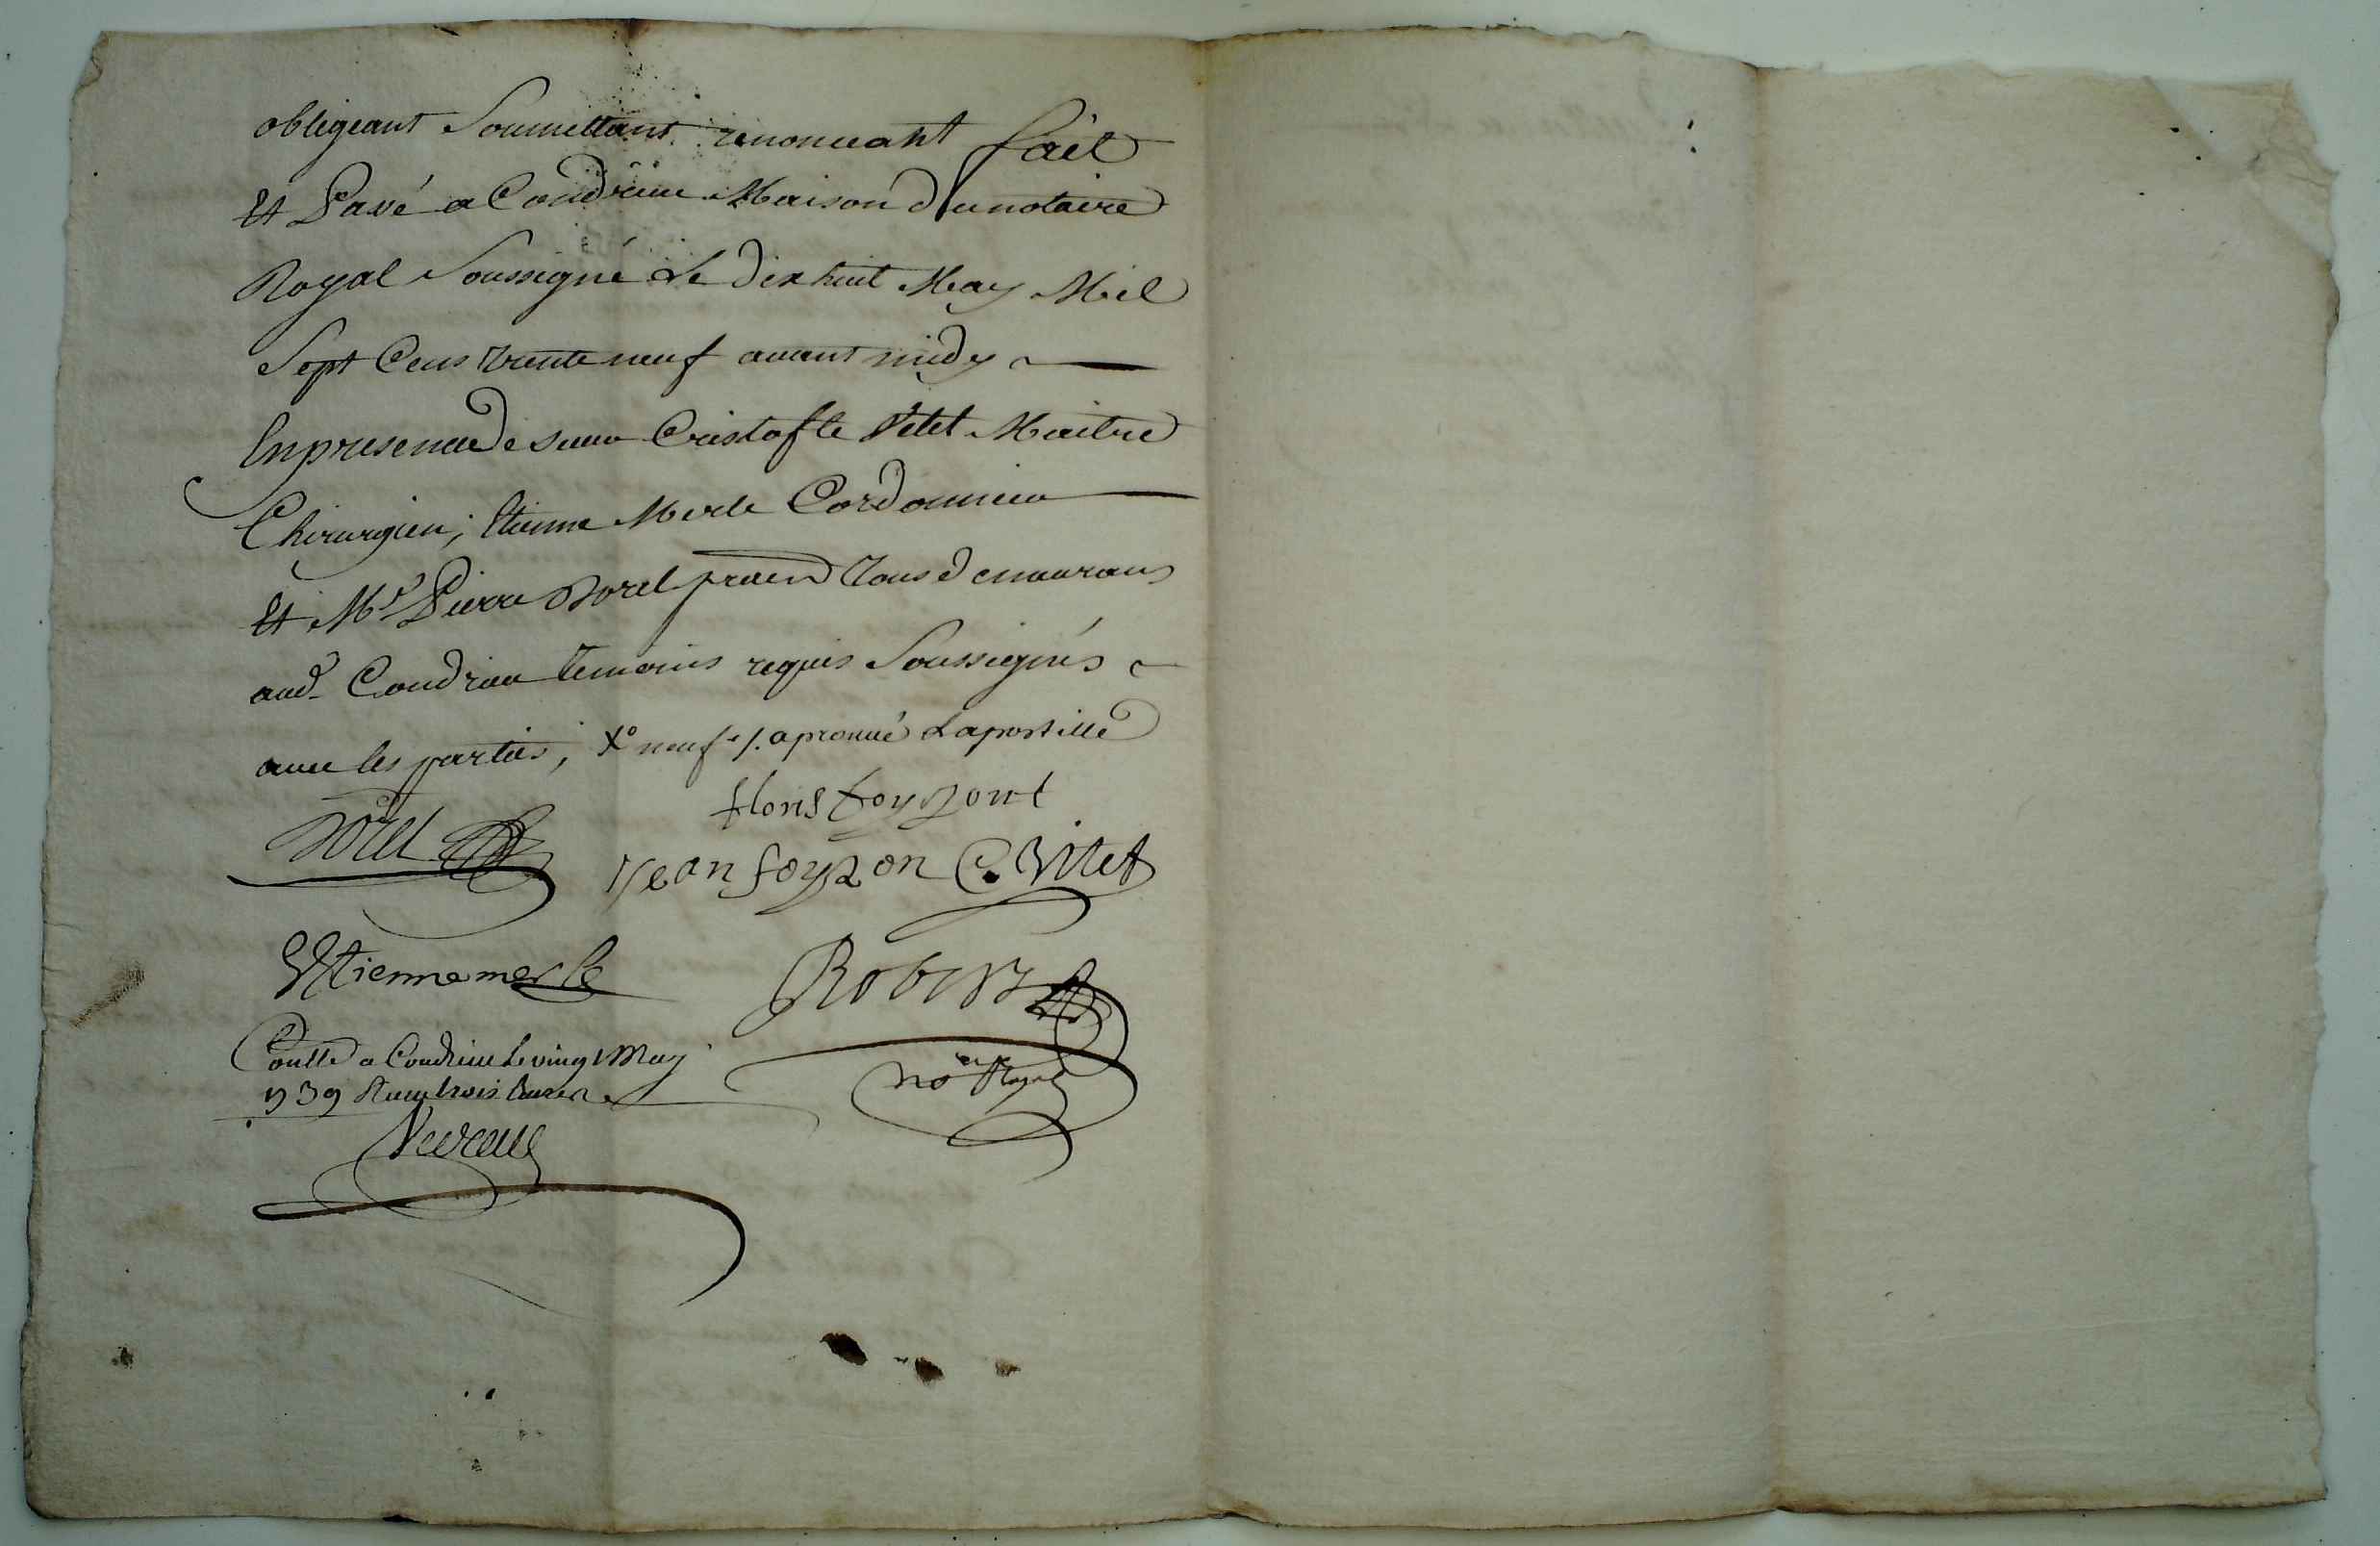 obligeant Soumettant renonceant fait
Et Passé a Condrieu Maison du notaire
Royal Soussigné Le dix huit May Mil
Sept Cens trente neuf avant midy
En presence de sieur Cristofle Vitet Maitre
Chirurgien, Etienne Merle Cordonnier
Et Mr Pierre Borel pratn Tous demeurans
aud. Condrieu temoins requis Soussignés
avec les parties, Xo neuf ./. aprouvé Lapostille
Borel
floris foyzont
Jean foyzon C. Vitet
Etienne merle
Robert
no re Royal
Conlle a Condrieu Le vingt May
1739 Reçu trois livres